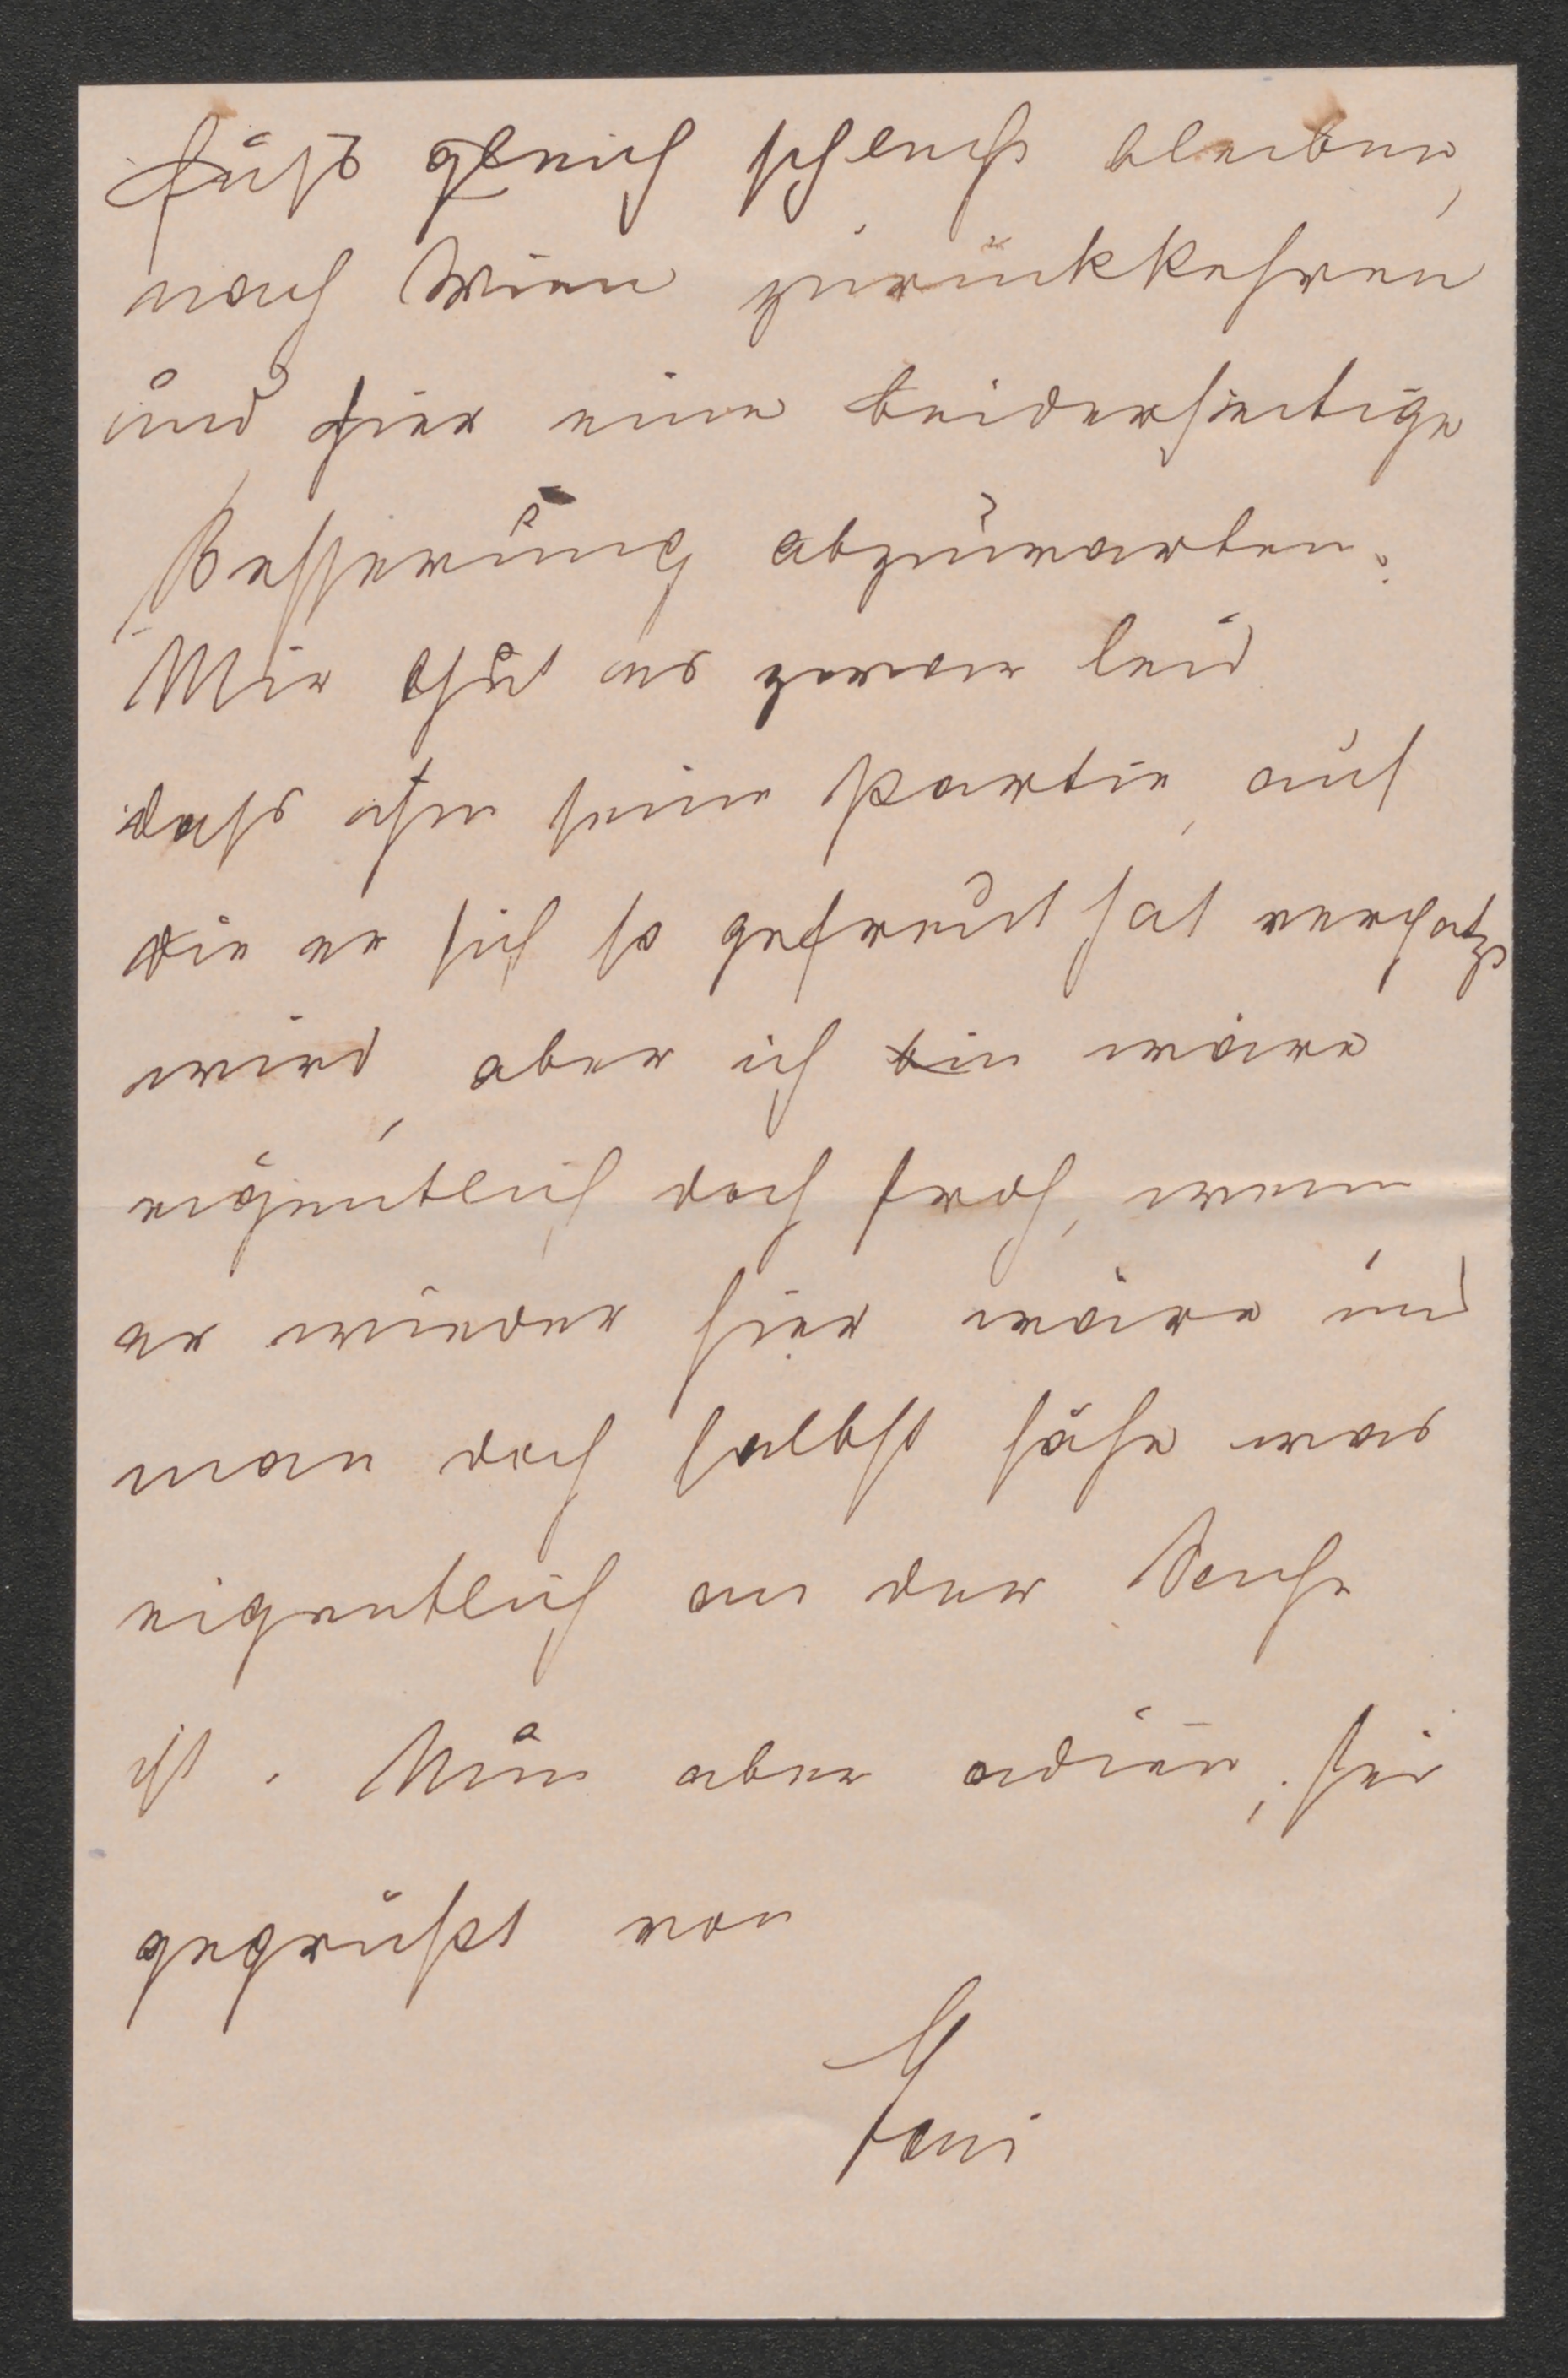 Fuß gleich schlecht bleiben,
nach Wien zurückkehren
und hier eine beiderseitige
Besserung abzuwarten.
Mir thut es zwar leid
dass ihm seine Partie, auf
die er sich so gefreut hat verpatzt
wird, aber ich bin wäre
eigentlich doch froh, wenn
er wieder hier wäre und
man doch selbst sähe was
eigentlich an der Sache
ist. Nun aber adieu, sei
gegrüßt von
Toni